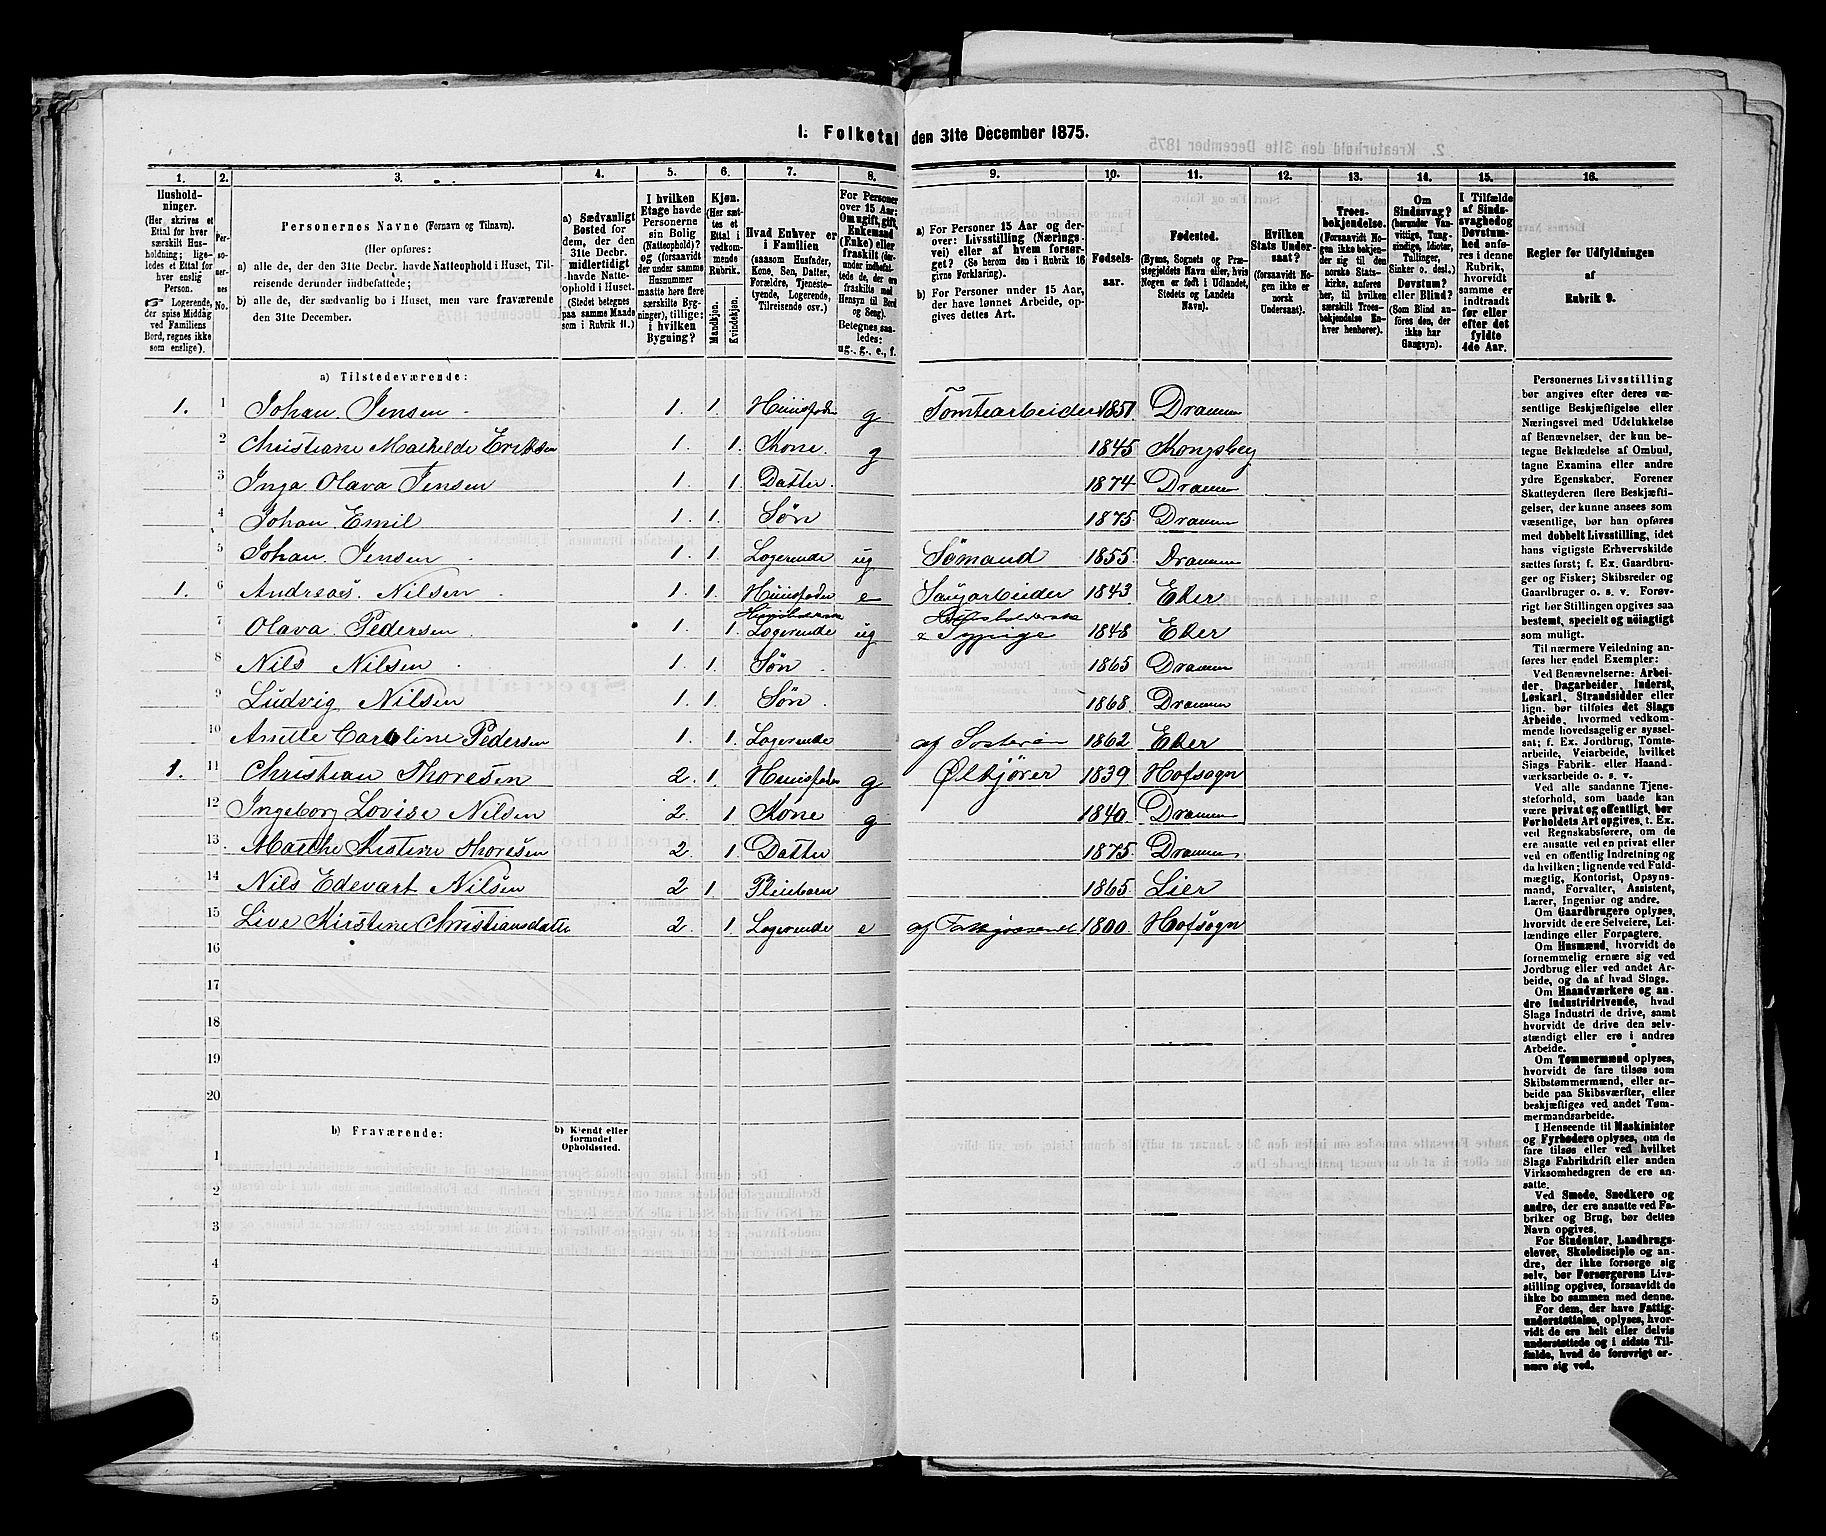 1. Folketal den 31te December 1875.
1. 2. 3. 4. 5. 6. 7. 8. 9. 10. 11. 12. 13. 14. 15. 16.
Hushold-
ninger.
(Her skrives et
Ettal for hver
særskilt Hus-
holdning; lige-
ledes et Ettal for
hver enslig
Person.
☞ Logerende,
der spise Middag
ved Familiens
Bord, regnes ikke
som enslige).
Per-
so-
ner-
nes
No.
Personernes Navne (Fornavn og Tilnavn).
(Her opføres:
a) alle de, der den 31te Decbr. havde Natteophold i Huset, Til-
reisende derunder indbefattede;
b) alle de, der sædvanlig bo i Huset, men vare fraværende
den 31te December.
a) Sædvanligt
Bosted for
dem, der den
31te Decbr.
midlertidigt
havde Natte-
ophold i Huset.
(Stedet betegnes
paa samme Maade
som i Rubrik 11.)
I hvilken
Etage havde
Personerne
sin Bolig
(Natteophold)?
og (forsaavidt
der under samme
Husnummer
maatte høre flere
særskilte Byg-
ninger), tillige:
i hvilken
Bygning?
Kjøn.
(Her sæt-
tes et
Ettal i
vedkom-
mende
Rubrik.
Mandkjøn.
Kvindekjøn.
Hvad Enhver er
i Familien
(saasom Husfader,
Kone, Søn, Datter,
Forældre, Tjeneste-
tyende, Logerende,
Tilreisende osv.)
For Personer
over 15 Aar:
Om ugift, gift,
Enkemand
(Enke) eller
fraskilt (der-
under indbefat-
tede de, der ere
fraskilte med
Hensyn til Bord
og Seng).
Betegnes saa-
ledes:
ug., g., e., f.
a) For Personer 15 Aar og der-
over: Livsstilling (Nærings-
vei) eller af hvem forsør-
get? (Se herom den i Rubrik 16
givne Forklaring).
b) For Personer under 15 Aar,
der have lønnet Arbeide, op-
gives dettes Art.
Fødsels-
aar.
Fødested.
(Byens, Sognets og Præ-
stegjeldets Navn eller, hvis
Nogen er født i Udlandet,
Stedets og Landets
Navn).
Hvilken
Stats Under-
saat?
(forsaavidt No-
gen ikke er
norsk
Undersaat).
Troes-
bekjendelse.
(Forsaavidt No-
gen ikke bekjen-
der sig til den
norske Stats-
kirke, anføres
her, til hvilken
særskilt Troes-
bekjendelse En-
hver henhører).
Om
Sindssvag?
(herunder Van-
vittige, Tung-
sindige, Idioter,
Tullinger,
Sinker o. desl.)
Døvstum?
eller Blind?
(Som Blind an-
føres den, der
ikke har
Gangsyn).
I Tilfælde
af Sinds-
svaghed og
Døvstum-
hed anfø-
res i denne
Rubrik,
hvorvidt
samme er
indtraadt
før eller
efter det
fyldte
4de Aar.
Regler for Udfyldningen
af
Rubrik 9.
a) Tilstedeværende:
1. 1 Johan Jensen 1. 1. Huusfader g Tomtearbeider 1851 Dramen
2 Christiane Mathilde Eriksen 1. 1. Kone. g 1845 Kongsberg
3 Inga Olava Jensen 1. 1. Datter. 1874 Dramen
4 Johan Emil 1. 1. Søn 1875 Dramen
5 Johan Jensen 1. 1. Logerende ug Sømand 1855 Dramen
1. 6 Andreas Nilsen 1. 1. Huusfader e Saugarbeider 1843 Eker
7 Olava Pedersen 1. 1. Logerende ug 1848 Eker
8 Nils Nilsen 1. 1. Søn 1865 Dramen
9 Ludvig Nilsen 1. 1. Søn 1868 Dramen
10 Anette Caroline Pedersen 1. 1. Logerende af 1862 Eker
1. 11 Christian Thoresen 2. 1. Huusfader g Ølkjører 1839 Hofsogn
12 Ingeborg Lovise Nilsen 2. 1 Kone g 1840 Dramen
13 Mathe Kistine Thoresen 2. 1. Datter 1875 Dramen
14 Nils Edevart Nilsen 2 1. Pleiebarn 1865 Lier
15 Live Kirstine Christiansdatte 2. 1. Logerende e af 1800 Hofsogn
16
17
18
19
20
b) Fraværende:
b) Kjendt eller
formodet
Opholdssted.
1
2
3
4
5
6
Personernes Livsstilling
bør angives efter deres væ-
sentlige Beskjæftigelse eller
Næringsvei med Udelukkelse
af Benævnelser, der kun be-
tegne Beklædelse af Ombud,
tagne Examina eller andre
ydre Egenskaber. Forener
Skatteyderen flere Beskjæfti-
gelser, der kunne ansees som
væsentlige, bør han opføres
med dobbelt Livsstilling, idet
hans vigtigste Erhvervskilde
sættes først; f. Ex. Gaardbru-
ger og Fisker; Skibsreder og
Gaardbruger o. s. v. Forøv-
rigt bør Stillingen opgives saa
bestemt, specielt og nøiagtigt
som muligt.
Til nærmere Veiledning an-
føres her endel Exempler:
Ved Benævnelserne: Arbei-
der, Dagarbeider, Inderst,
Løskarl, Strandsidder eller
lign. bør tilføies det Slags
Arbeide, hvormed vedkom-
mende hovedsagelig er syssel-
sat; f. Ex. Jordbrug, Tomte-
arbeide, Veiarbeide, hvilket
Slags Fabrik- eller Haand-
værksarbeide o. s. v.
Ved alle saadanne Tjene-
steforhold, som baade kan
være privat og offentligt, bør
Forholdets Art opgives, t. Ex.
ved Regnskabsførere, om de
ere ansatte ved en privat eller
ved en offentlig Indretning og
da hvilken; lignende ved Fuld-
mægtig, Kontorist, Opsyns-
mand, Forvalter, Assistent,
Lærer, Ingeniør og andre.
Om Gaardbrugere oplyses,
hvorvidt de ere Selveiere, Lei-
lændinge eller Forpagtere.
Om Husmænd, hvorvidt de
fornemmelig ernære sig ved
Jordbrug eller ved andet Ar-
beide, og da af hvad Slags.
Om Haandværkere og an-
dre Industridrivende, hvad
Slags Industri de drive, samt
hvorvidt de drive den selv-
stændigt eller ere i andres
Arbeide.
Om Tømmermænd oplyses,
hvorvidt de fare tilsøs som
Skibstømmermænd, eller ar-
beide paa Skibsværfter, eller
beskjæftiges ved andet Tøm-
mermandsarbeide.
I Henseende til Maskinister
og Fyrbødere oplyses, om de
fare tilsøs eller ved hvilket
Slags Fabrikdrift eller anden
Virksomhedsgren de ere an-
satte.
Ved Smede, Snedkere og
andre, der ere ansatte ved Fa-
briker og Brug, bør dettes
Navn opgives.
For Studenter, Landbrugs-
elever, Skoledisciple og an-
dre, der ikke forsørge sig
selv, bør Forsørgerens Livs-
stilling opgives, forsaavidt de
ikke bo sammen med denne.
For dem, der have Fattig-
understøttelse, oplyses, hvor-
vidt de ere helt eller delvis
understøttede og i sidste Til-
fælde, hvad de forøvrigt er-
nære sig ved.